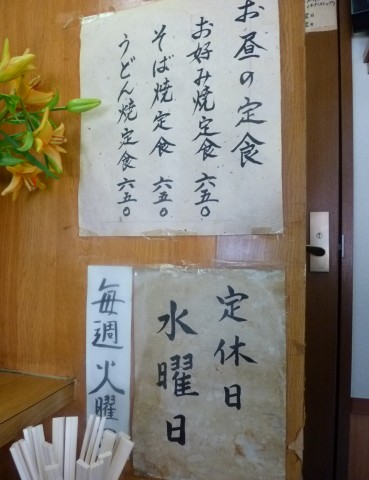 お昼の定食
お好み焼定食 六五〇
そば焼定食 六五〇
うどん焼定食 六五〇
定休日
水曜日
毎週火曜